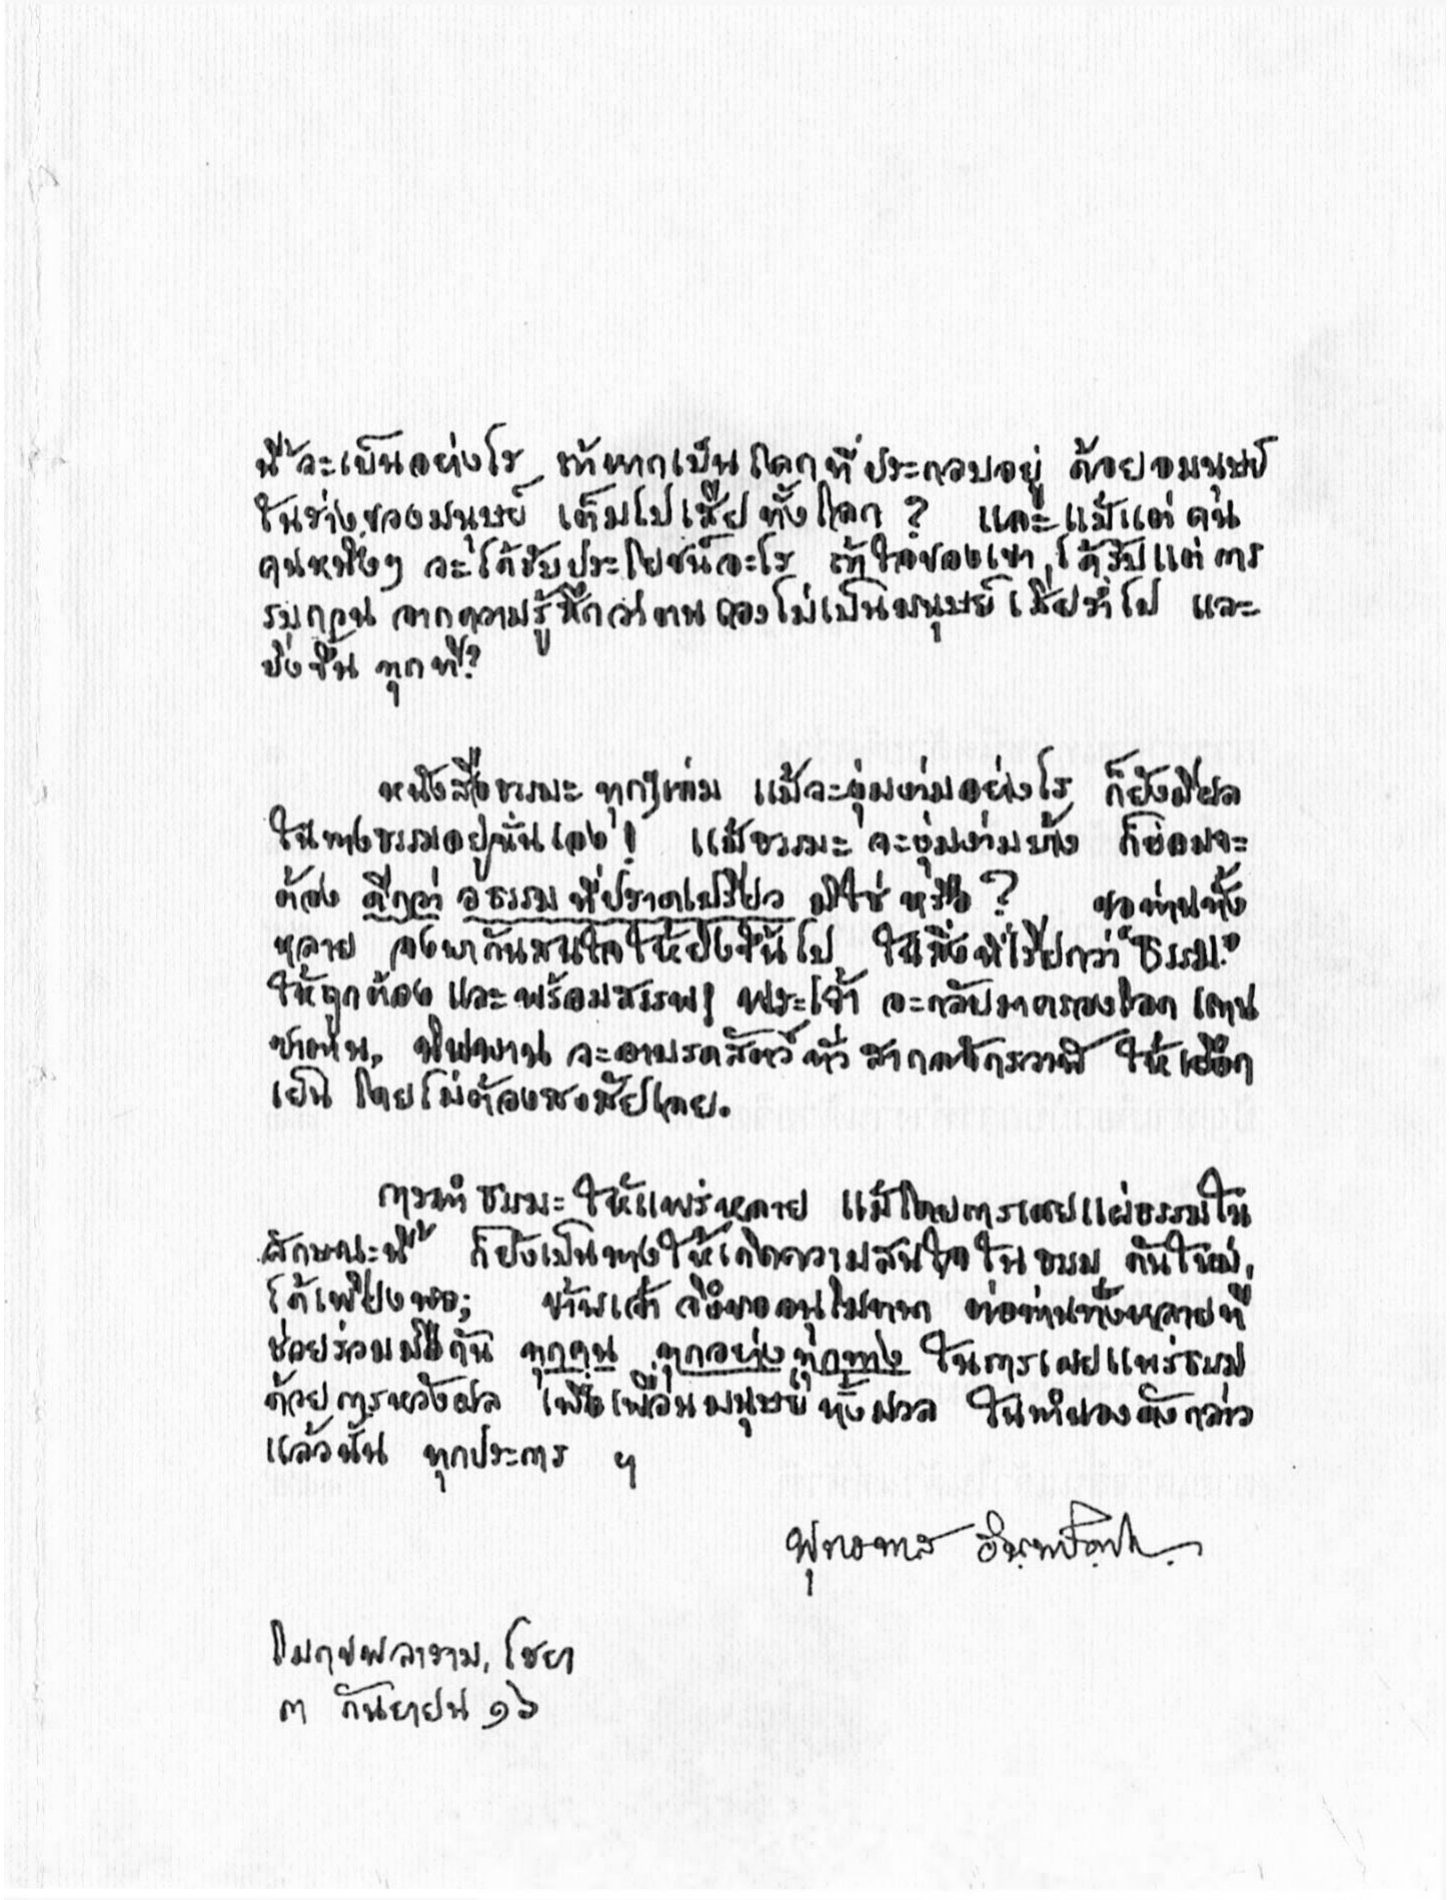 นี้ จะเป็นอย่างไร ถ้าหากเป็นโลกที่ประกอบอยู่ ด้วยอมนุษย์
ในร่างของมนุษย์ เต็มไปเสียทั้งโลก ? และแม้แต่คน
คนหนึ่งๆ จะได้รับประโยชน์อะไร ถ้าใจของเขา ได้รับแต่การ
รบกวน จากความรู้สึกว่าตนเองไม่เป็นมนุษย์ เสียร่ำไป และ
ยิ่งขึ้น ทุกที?
หนังสือธรรมะ ทุกๆเล่ม แม้จะงุ่มง่ามอย่างไร ก็ยังมีผล
ในทางธรรมอยู่นั่นเอง ! แม้ธรรมะ จะงุ่มง่ามบ้าง ก็ย่อมจะ
ต้อง ดีกว่า อธรรมที่ปราดเปรียว มิใช่หรือ ? ขอท่านทั้ง
หลาย จงพากันสนใจให้ยิ่งขึ้นไป ในสิ่งที่เรียกว่า "ธรรม"
ให้ถูกต้อง และพร้อมสรรพ, พระเจ้า จะกลับมาครองโลก แทน
ซาตาน, นิพพาน จะอาบรดสัตว์ ทั่วสากลจักรวาฬ ให้เยือก
เย็น โดยไม่ต้องสงสัยเลย.
การทำธรรมะ ให้แพร่หลาย แม้โดยการเผยแผ่ธรรมใน
ลักษณะนี้ ก็ยังเป็นทางให้เกิดความสนใจในธรรม กันใหม่,
ได้เพียงพอ; ข้าพเจ้า จึงขออนุโมทนา ต่อท่านทั้งหลายที่
ช่วยร่วมมือกัน ทุกคน ทุกอย่าง ทุกทาง ในการเผยแพร่ธรรม
ด้วยการหวังผล เพื่อเพื่อนมนุษย์ทั้งมวล ในทำนองดังกล่าว
แล้วนั้น ทุกประการ ฯ
พุทธทาส อินทปัญโญ
โมกขพลาราม, ไชยา
๓ กันยายน ๑๖